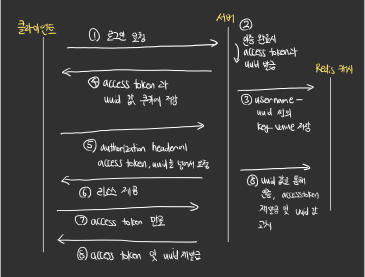 클라이언트
서버
Redis 캐시
① 로그인 요청
②
인증 완료시
access token과
uuid 발급
③ username -
uuid 쌍의
key-value 저장
④ access token 과
uuid 값 쿠키에 저장
⑤ authorization header에
access token, uuid를 담아서 요청
⑥ 리소스 제공
⑦ access token 만료
⑧ uuid 값을 통해
인증, access token
재발급 및 uuid 값
⑧ access token 및 uuid 재발급